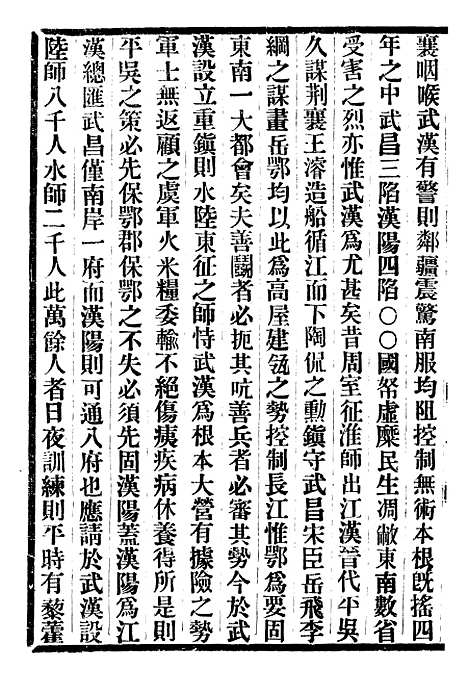 襄咽喉武漢有警則鄰疆震驚南服均阻控制無術本根旣搖四
年之中武昌三陷漢陽四陷○○國帑虛糜民生凋敝東南數省
受害之烈亦惟武漢爲尤甚矣昔周室征淮師出江漢晉代平吳
久謀荆襄王濬造船循江而下陶侃之勳鎭守武昌宋臣岳飛李
綱之謀畫岳鄂均以此爲高屋建瓴之勢控制長江惟鄂爲要固
東南一大都會矣夫善鬭者必扼其吭善兵者必審其勢今於武
漢設立重鎭則水陸東征之師恃武漢爲根本大營有據險之勢
軍士無返顧之虞軍火米糧委輸不絕傷痍疾病休養得所是則
平吳之策必先保鄂郡保鄂之不失必須先固漢陽蓋漢陽爲江
漢總匯武昌僅南岸一府而漢陽則可通八府也應請於武漢設
陸師八千人水師二千人此萬餘人者日夜訓練則平時有藜藿